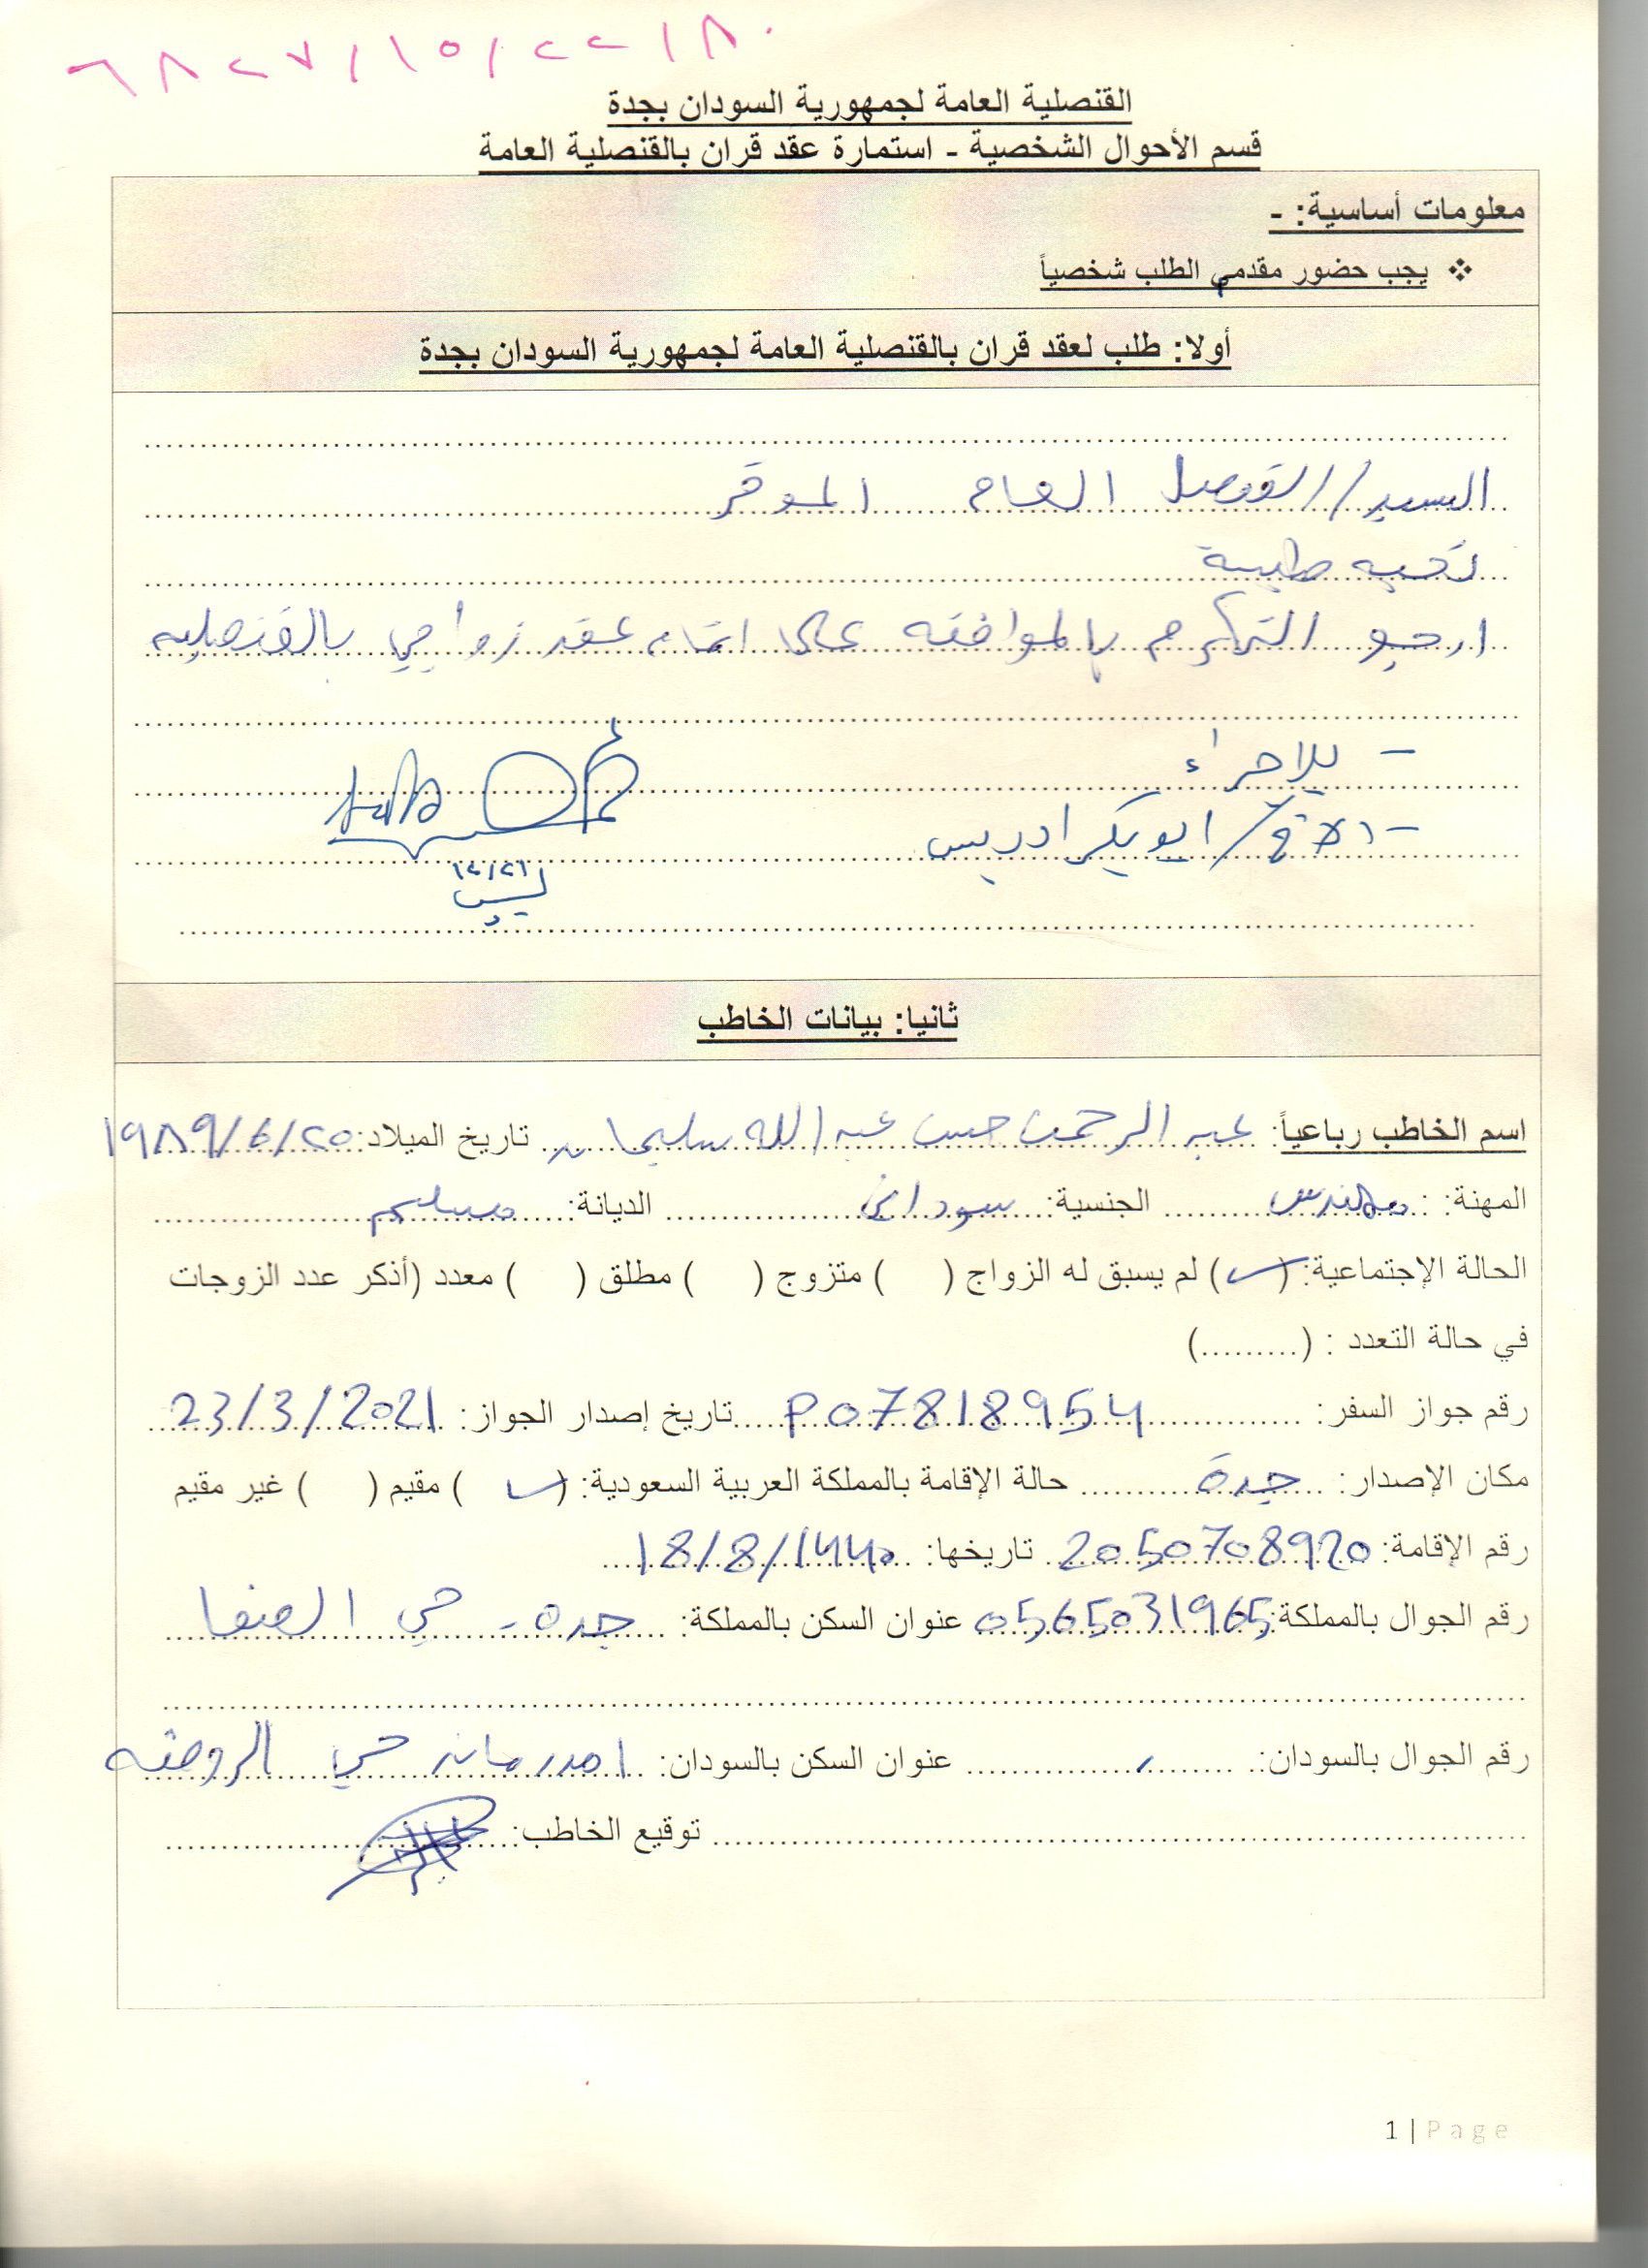 ٦٨٢٧/١٥/٢٢/٨٠
القنصلية العامة لجمهورية السودان بجدة
قسم الأحوال الشخصية - استمارة عقد قران بالقنصلية العامة
معلومات أساسية: -
❖ يجب حضور مقدمي الطلب شخصياً
أولا: طلب لعقد قران بالقنصلية العامة لجمهورية السودان بجدة
السيد/ القنصل العام الموقر
تحيه طيبة
ارجو التكرم بالموافقه على اتمام عقد زواجي بالقنصليه
- للاجراء
- الاخ/ ابوبكر ادريس
١٢/٢١
ثانيا: بيانات الخاطب
اسم الخاطب رباعياً: عبد الرحمن حسن عبد الله سليمان تاريخ الميلاد: ١٩٨٩/٦/٢٥
المهنة: مهندس الجنسية: سوداني الديانة: مسلم
الحالة الإجتماعية: (✓) لم يسبق له الزواج ( ) متزوج ( ) مطلق ( ) معدد (أذكر عدد الزوجات
في حالة التعدد : (.........)
رقم جواز السفر: P07818954 تاريخ إصدار الجواز: 23/3/2021
مكان الإصدار: جدة حالة الإقامة بالمملكة العربية السعودية: (✓) مقيم ( ) غير مقيم
رقم الإقامة: 2050708920 تاريخها: 18/8/1440
رقم الجوال بالمملكة: 0565031965 عنوان السكن بالمملكة: جده - حي الصفا
رقم الجوال بالسودان: عنوان السكن بالسودان: امدرمان حي الروضه
توقيع الخاطب:
1 | Page